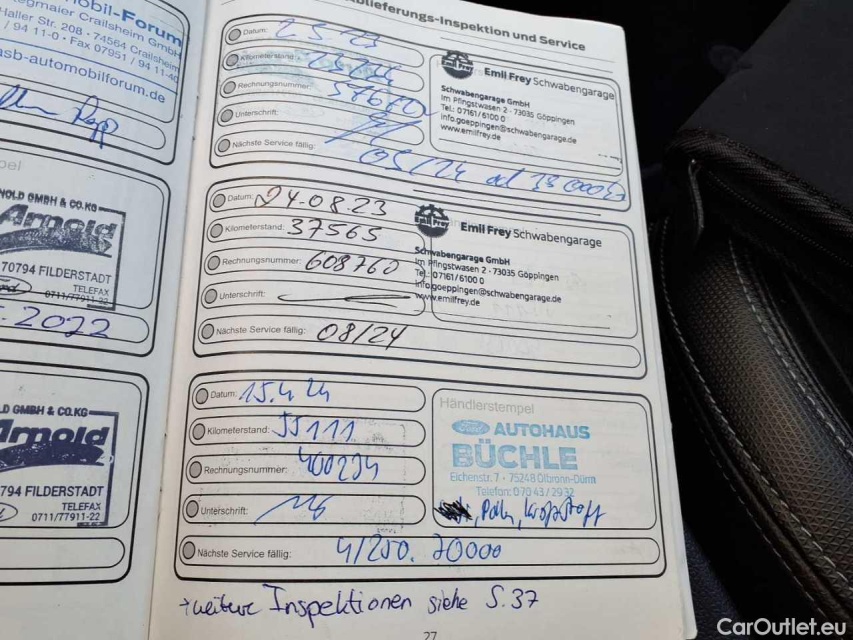 bil-Forum
egmaier Crailsheim GmbH
Haller Str. 208 · 74564 Crailsheim
/ 94 11-0 · Fax 07951 / 94 11-40
asb-automobilforum.de
pel
NOLD GMBH & CO.KG
Arnold
70794 FILDERSTADT
TELEFAX
0711/77911-22
-2022
LD GMBH & CO.KG
Arnold
794 FILDERSTADT
TELEFAX
0711/77911-22
blieferungs-Inspektion und Service
Datum:
Kilometerstand:
Rechnungsnummer:
Unterschrift:
Nächste Service fällig: 05/24
Emil Frey
Emil Frey Schwabengarage
Schwabengarage GmbH
Im Pfingstwasen 2 · 73035 Göppingen
Tel.: 07161/6100 0
info.goeppingen@schwabengarage.de
www.emilfrey.de
Datum: 24.08.23
Kilometerstand: 37565
Rechnungsnummer: 608760
Unterschrift:
Nächste Service fällig: 08/24
Emil Frey
Emil Frey Schwabengarage
Schwabengarage GmbH
Im Pfingstwasen 2 · 73035 Göppingen
Tel.: 07161/6100 0
info.goeppingen@schwabengarage.de
www.emilfrey.de
Datum: 15.4.24
Kilometerstand: 55111
Rechnungsnummer: 400234
Unterschrift:
Nächste Service fällig: 4/250. 70000
Händlerstempel
Ford AUTOHAUS
BÜCHLE
Eichenstr. 7 · 75248 Ölbronn-Dürrn
Telefon: 0 70 43 / 29 32
, Pollen, Kraftstoff
→ weitere Inspektionen siehe S. 37
27
CarOutlet.eu